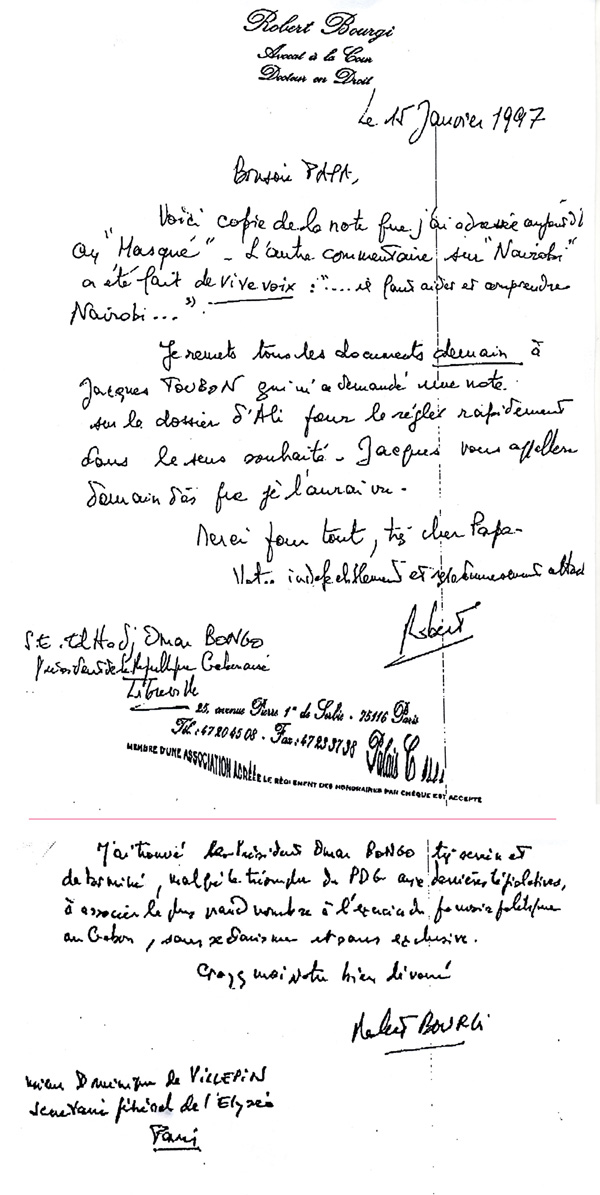 Robert Bourgi
Avocat à la Cour
Docteur en Droit
Le 15 Janvier 1997
Bonsoir PAPA,
Voici copie de la note que j'ai adressée aujourd'hui
au "Masqué" - L'autre commentaire sur "Nairobi"
a été fait de vive voix : "... il faut aider et comprendre
Nairobi..."
Je remets tous les documents demain à
Jacques TOUBON qui m'a demandé une note
sur le dossier d'Ali pour le régler rapidement
dans le sens souhaité - Jacques vous appellera
demain dès que je l'aurai vu -
Merci pour tout, très cher Papa -
Votre indéfectiblement et
Robert
S.E. El Hadj Omar BONGO
Président de la République Gabonaise
Libreville
25, avenue Pierre 1er de Serbie - 75116 Paris
Tél : 47 20 45 08 - Fax : 47 23 37 38 Palais C
MEMBRE D'UNE ASSOCIATION AGRÉÉE LE RÈGLEMENT DES HONORAIRES PAR CHÈQUE EST ACCEPTÉ
J'ai trouvé le Président Omar BONGO très serein et
déterminé, malgré le triomphe du PDG aux dernières législatives,
à associer le plus grand nombre à l'exercice du pouvoir politique
au Gabon, sans et sans exclusive.
Croyez moi votre bien dévoué
Robert BOURGI
Dominique de VILLEPIN
Secrétaire général de l'Elysée
Paris